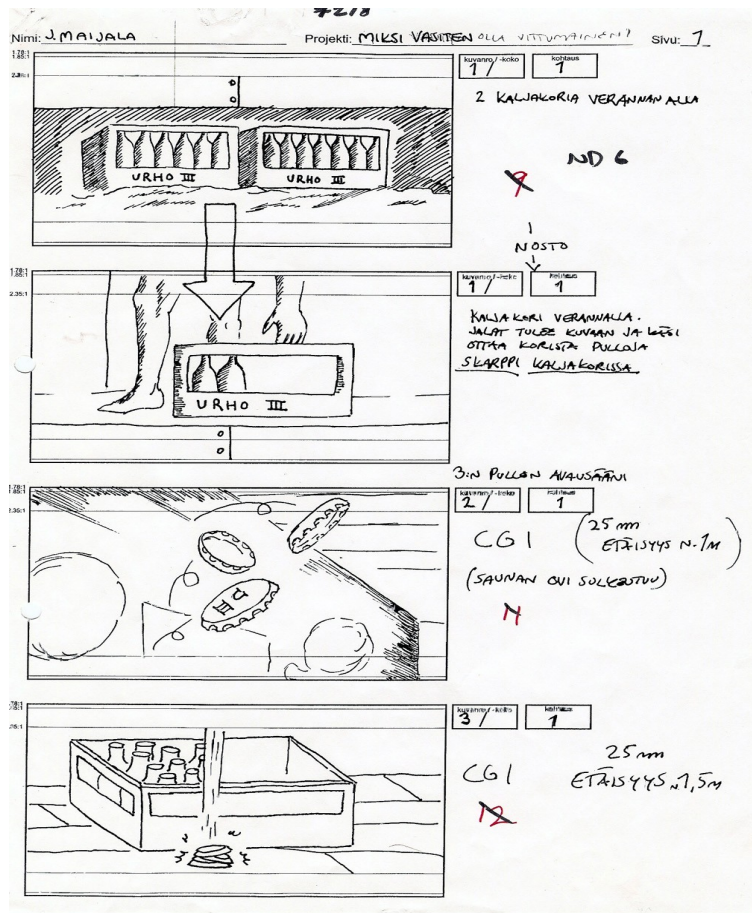 7278
Nimi: J. MAIJALA Projekti: MIKSI VASITEN OLLA VITTUMAINEN? Sivu: 1
1.78:1
1.85:1
2.35:1
kuvanro/-koko kohtaus
1/ 1
2 KALJAKORIA VERANNAN ALLA
ND 6
9
URHO III URHO III
NOSTO
1.78:1
1.85:1
2.35:1
kuvanro/-koko kohtaus
1/ 1
KALJAKORI VERANNALLA.
JALAT TULEE KUVAAN JA KÄSI
OTTAA KORISTA PULLOJA
SKARPPI KALJAKORISSA
URHO III
3:N PULLON AVAUSÄÄNI
1.78:1
1.85:1
2.35:1
kuvanro/-koko kohtaus
2/ 1
CGI (25 mm
ETÄISYYS N. 1M)
(SAUNAN OVI SULKEUTUU)
11
U III
1.78:1
1.85:1
2.35:1
kuvanro/-koko kohtaus
3/ 1
CGI 25 mm
ETÄISYYS N 1,5M
12